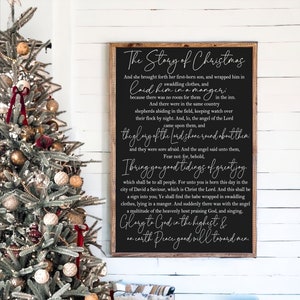 The Story of Christmas
And she brought forth her first-born son, and wrapped him in
swaddling clothes, and
laid him in a manger,
because there was no room for them in the inn.
And there were in the same country
shepherds abiding in the field, keeping watch over
their flock by night. And, lo, the angel of the Lord
came upon them, and
the glory of the Lord shone round about them
and they were sore afraid. And the angel said unto them,
Fear not: for, behold,
I bring you good tidings of great joy,
which shall be to all people. For unto you is born this day in the
city of David a Saviour, which is Christ the Lord. And this shall be
a sign unto you; Ye shall find the babe wrapped in swaddling
clothes, lying in a manger. And suddenly there was with the angel
a multitude of the heavenly host praising God, and singing,
Glory to God in the highest, &
on earth Peace, good will toward men.